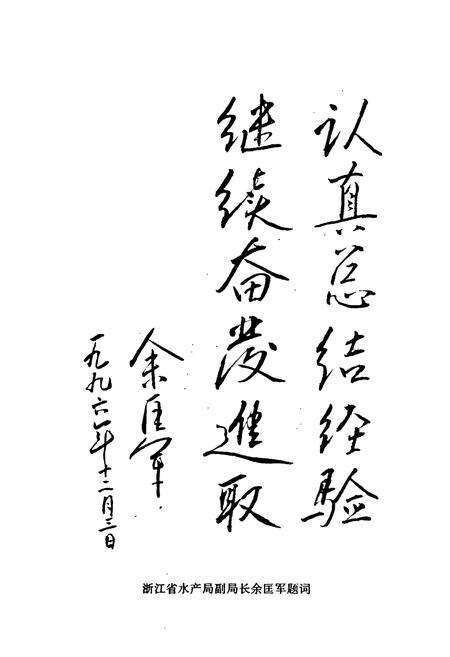 认真总结经验
继续奋发進取
余匡军
一九九六年十二月三日
浙江省水产局副局长余匡军题词